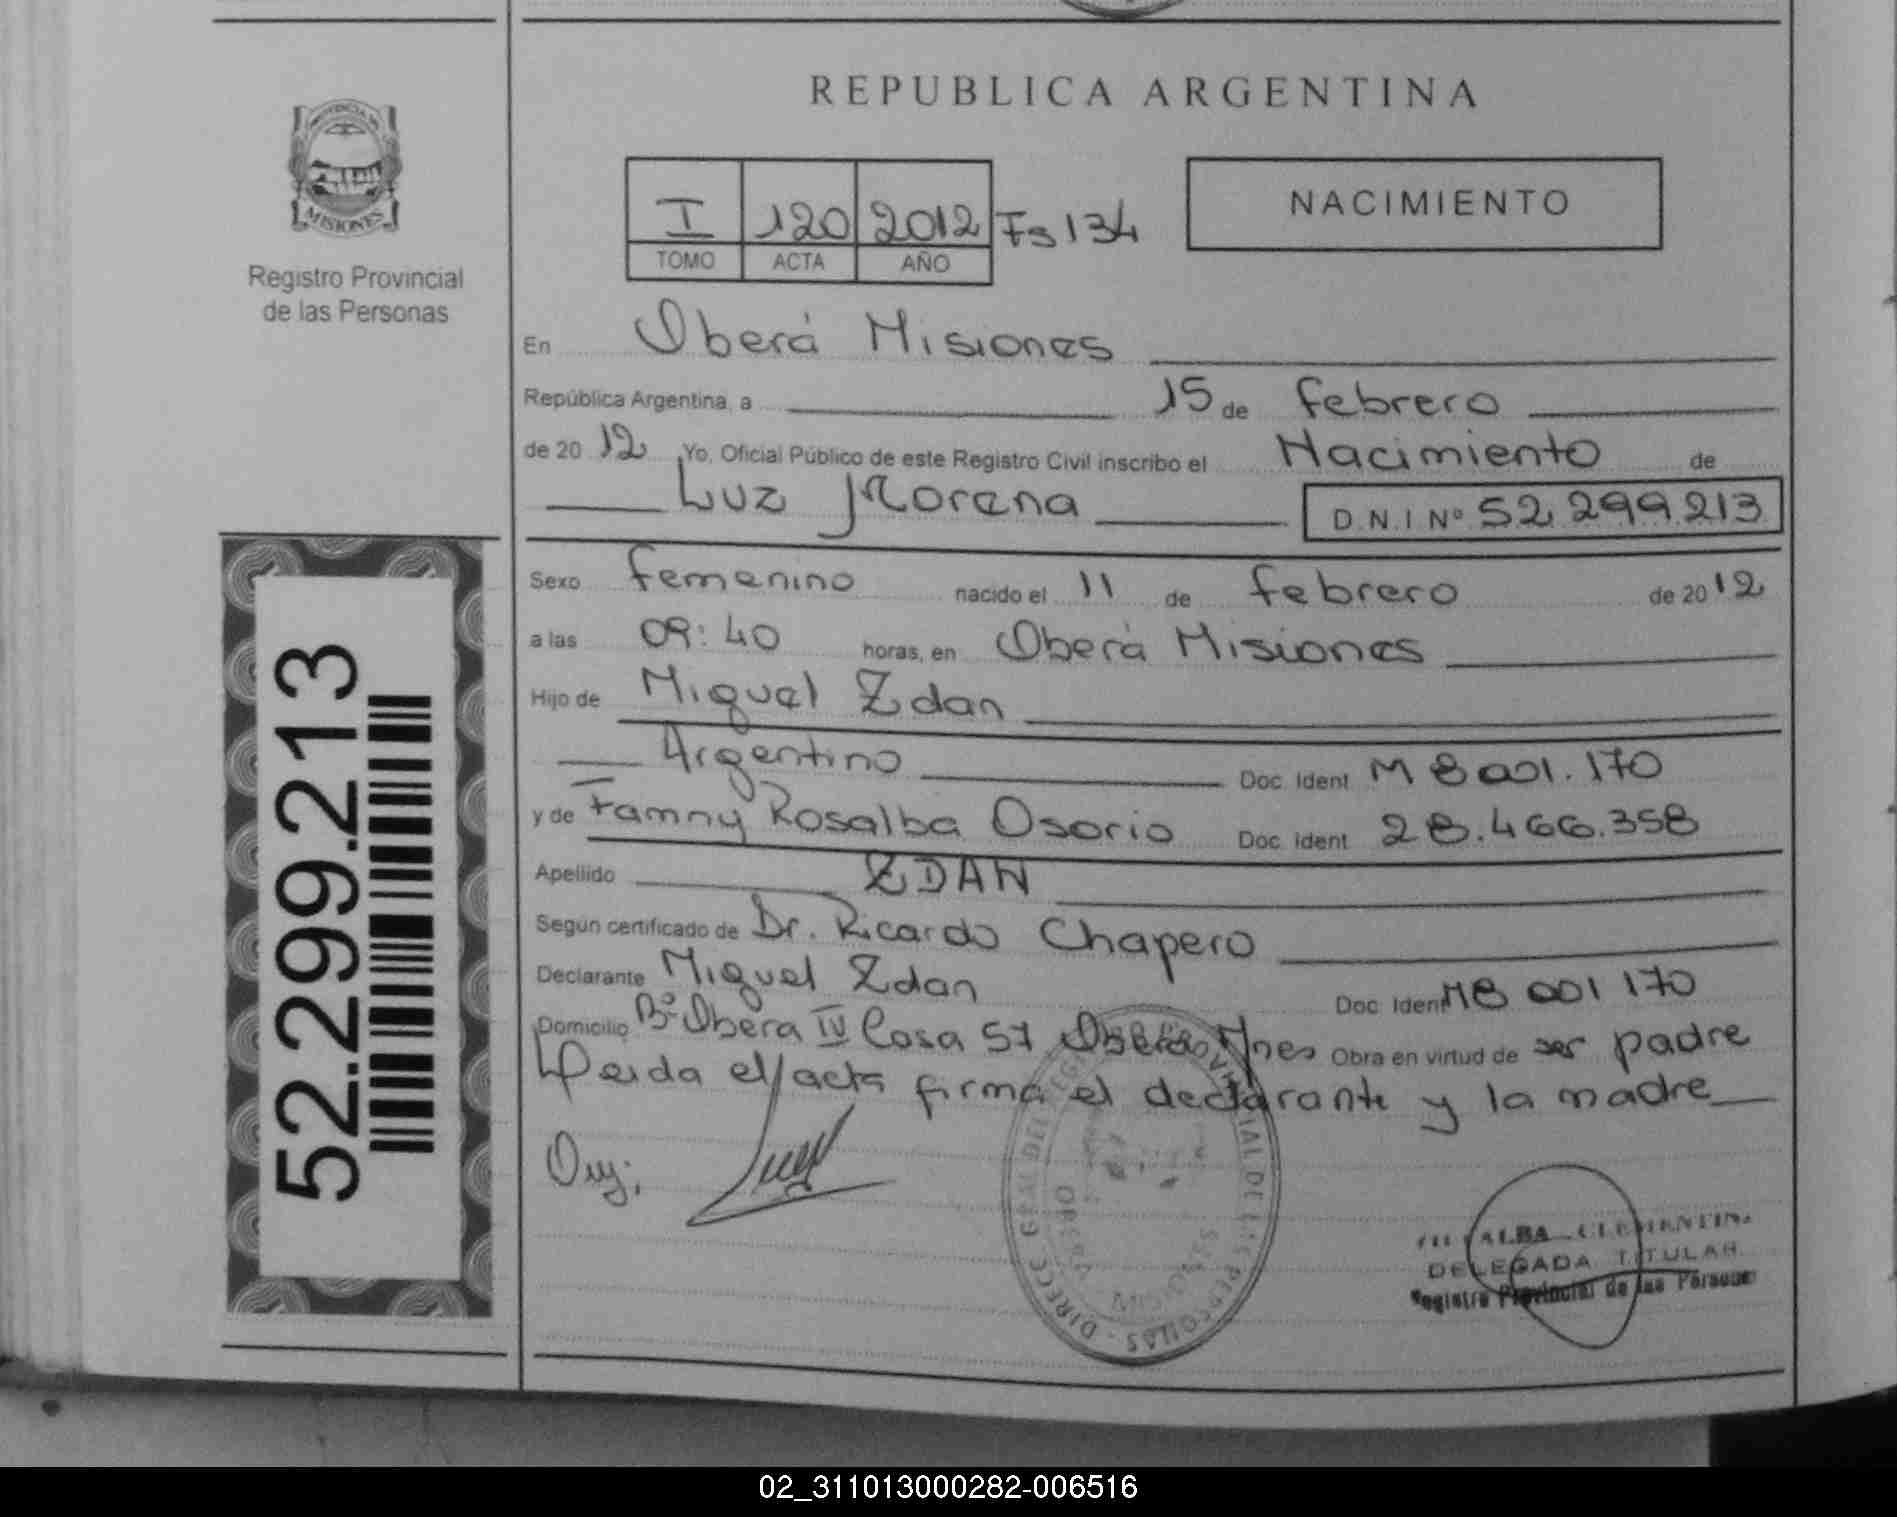 REPUBLICA ARGENTINA
PROVINCIA DE
MISIONES
Registro Provincial
de las Personas
I 120 2012 Fs 134
TOMO ACTA AÑO
NACIMIENTO
En Oberá Misiones
República Argentina, a 15 de febrero
de 20 12 Yo, Oficial Público de este Registro Civil inscribo el Nacimiento de
Luz Morena D.N.I Nº 52.299.213
Sexo femenino nacido el 11 de febrero de 20 12
a las 09:40 horas, en Oberá Misiones
Hijo de Miguel Zdan
Argentino Doc. Ident M 8001.170
y de Famny Rosalba Osorio Doc. Ident 28.466.358
Apellido ZDAN
Según certificado de Dr. Ricardo Chapero
Declarante Miguel Zdan Doc. Ident M8 001 170
Domicilio Bº Obera IV Casa 57 Mnes Obra en virtud de ser padre
Leida el acta firma el declarante y la madre
52.299.213
ALBA CLEMENTINA
DELEGADA TITULAR
Registro Provincial de las Personas
OBERA
MISIONES
02_311013000282-006516